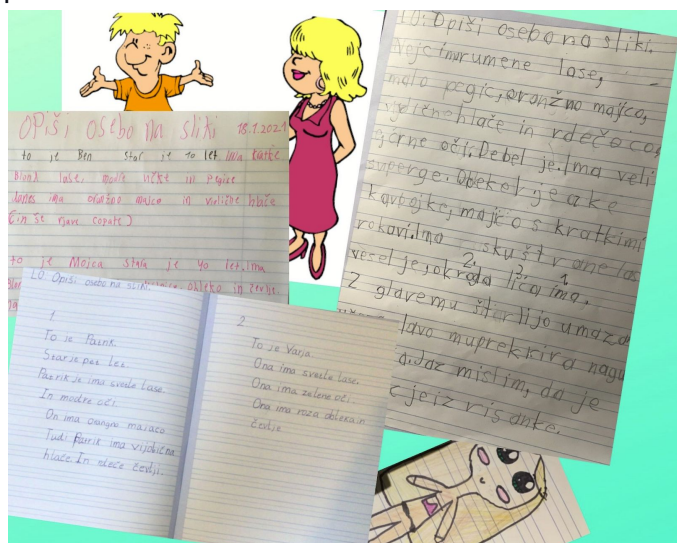 OPIŠI OSEBO NA SLIKI 18.1.2021
to je Ben. Star je 10 let. Ima kratke
blond lase, modre
danes ima oranžno majco in vijolične hlače
(in še rjave copate)
to je Mojca stara je 40 let. Ima
obleko in čevlje.
LO: Opiši osebo na sliki.
1
To je Patrik.
Star je pet let.
Patrik je ima svetle lase
In modre oči.
On ima orangno majaco
Tudi Patrik ima vijolična
hlače In rdeče čevlji.
2
To je Varja.
Ona ima svetle lase.
Ona ima zelene oči.
Ona ima roza obleka in
čevlje.
LO: Opiši osebo na sliki.
rumene lase,
malo pegic, oranžno majico,
hlače in rdeče
črne oči. Debel je. Ima veli
superge. Opekel je
kavbojke, majico s kratkimi
rokavi. Ima skuštrane las
2. 3. 1.
vesel je, okrogla lica ima.
Z glave mu štrlijo
Jaz mislim, da je
je iz risanke.